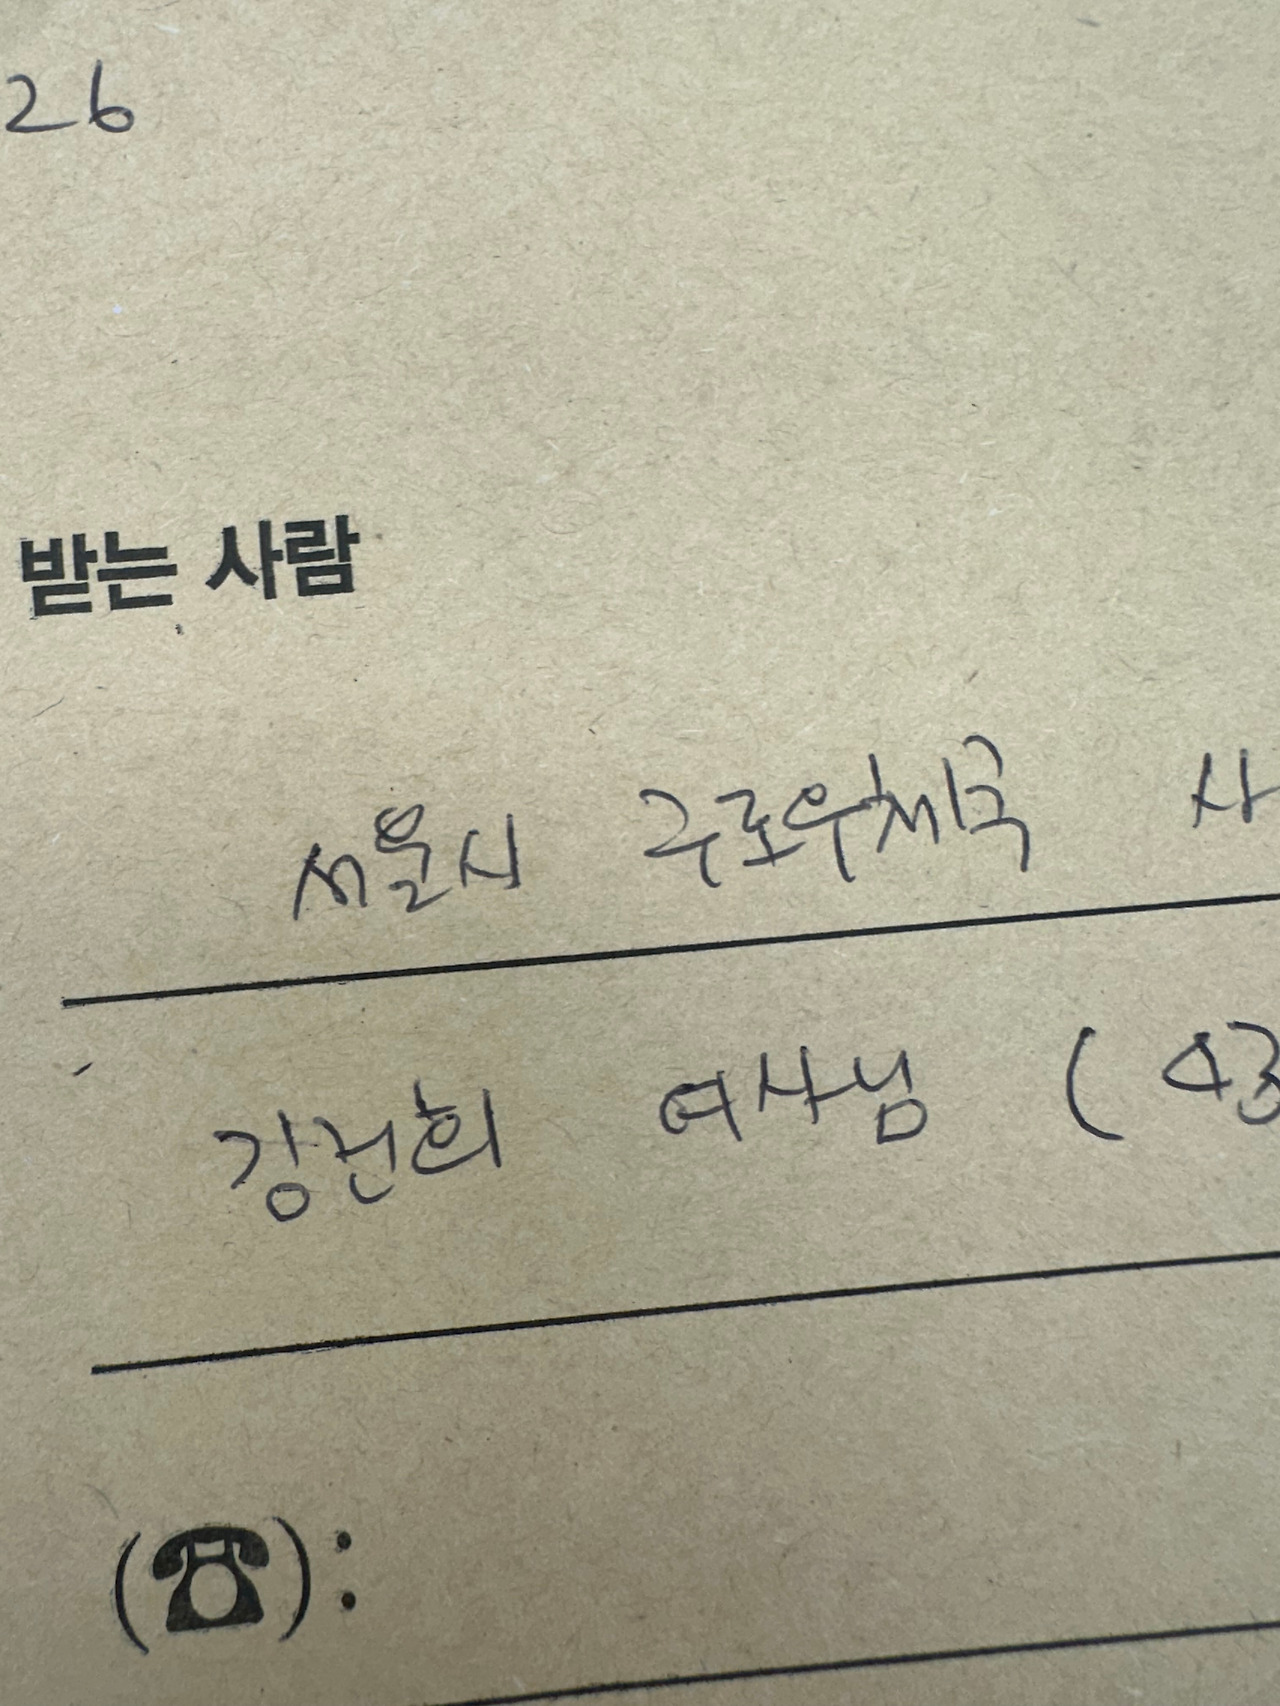 26
받는 사람
서울시 구로우체국 사
김건희 여사님 ( 43
(☎):